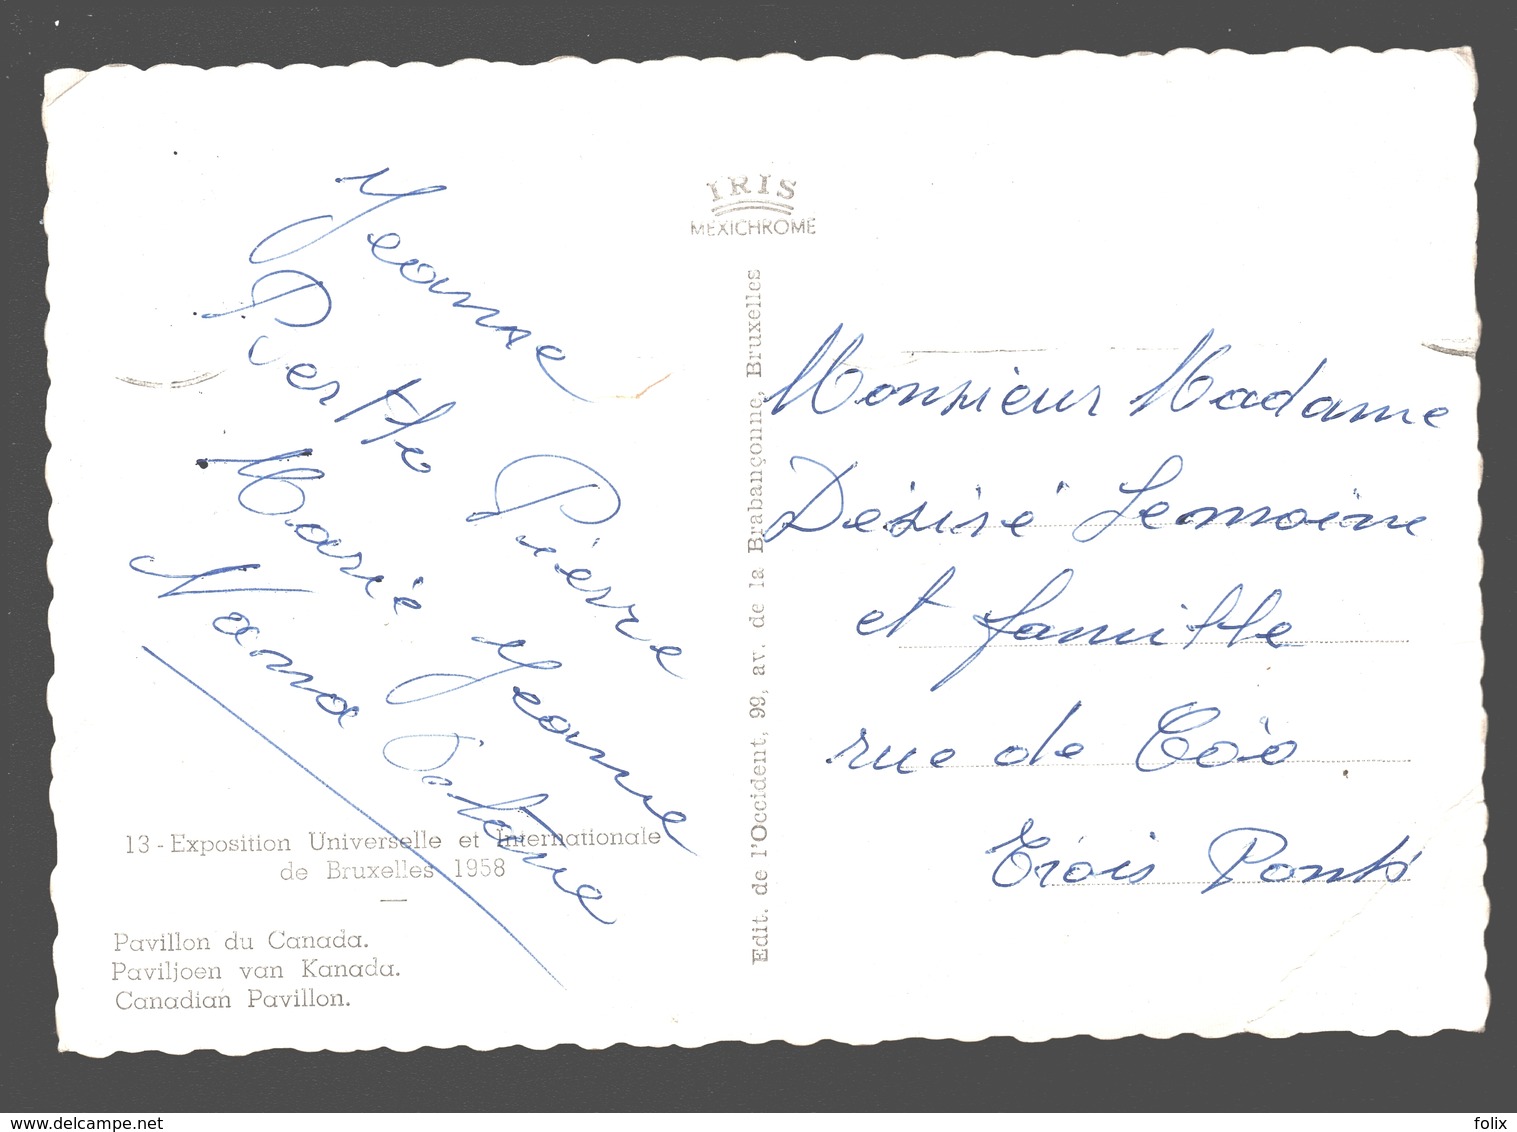 IRIS
MEXICHROME
Jeanne
Berthe Pierre
Marie Jeanne
Nana
13 - Exposition Universelle et Internationale
de Bruxelles 1958
Pavillon du Canada.
Paviljoen van Kanada.
Canadian Pavillon.
Edit. de l'Occident, 99, av. de la Brabançonne, Bruxelles
Monsieur Madame
Désiré Lemoine
et famille
rue de Côo
Trois Ponts
delcampe.net
felix